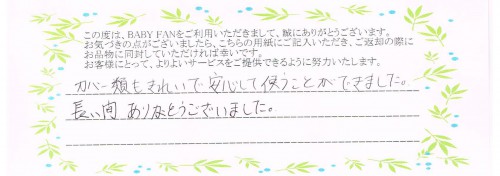 この度は、BABY FANをご利用いただきまして、誠にありがとうございます。
お気づきの点がございましたら、こちらの用紙にご記入いただき、ご返却の際に
お品物に同封していただければ幸いです。
お客様にとって、よりよいサービスをご提供できるように努力いたします。
カバー類もきれいで安心して使うことができました。
長い間ありがとうございました。